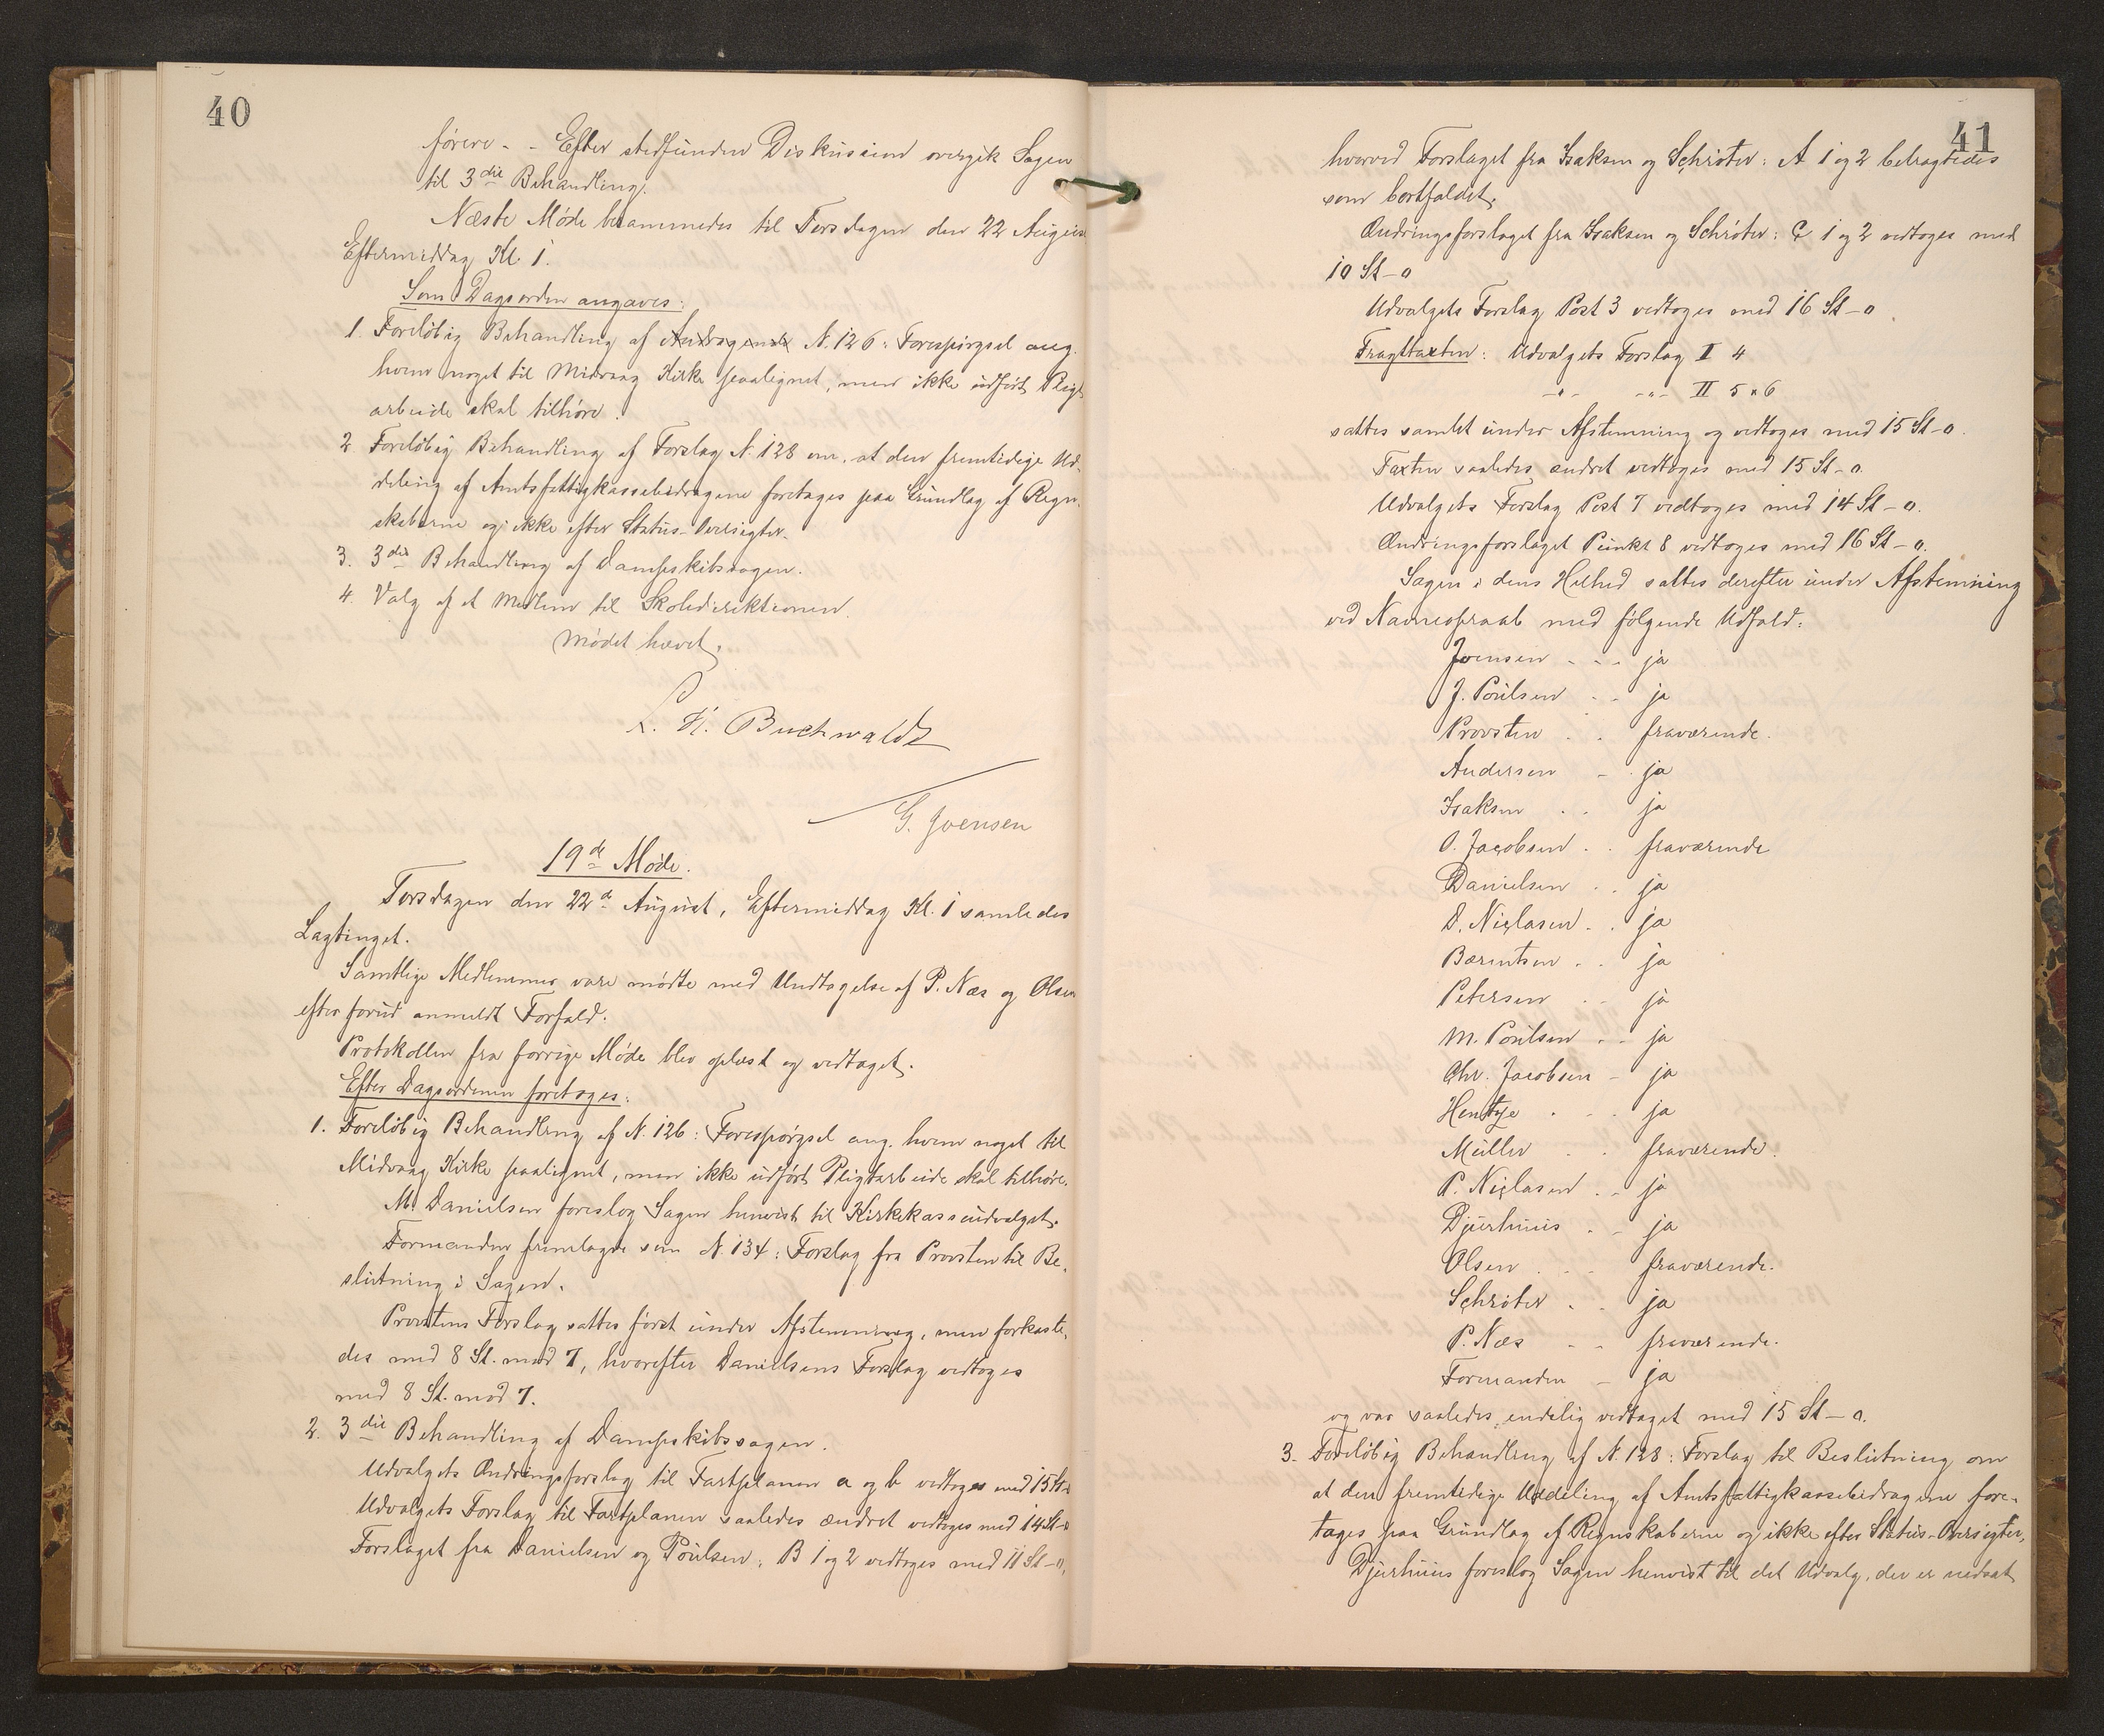 40
førere - - Efter stedfunden Diskussion overgik Sagen
til 3die Behandling.
Næste Møde berammedes til Torsdagen den 22 August
Eftermiddag Kl. 1.
Som Dagsorden angaves:
1. Foreløbig Behandling af Andragende N. 126: Forespørgsel ang.
hvem noget til Midvaag Kirke paalignet, men ikke udført Pligt
arbeide skal tilhøre.
2 Foreløbig Behandling af Forslag N. 128 om, at den fremtidige Ud-
deling af Amtsfattigkassebidragene foretages paa Grundlag af Regn-
skaberne og ikke efter Status-Oversigter.
3. 3die Behandling af Dampskibssagen.
4. Valg af et Medlem til Skoledirektionen.
Mødet hævet.
C. H. Buchwaldt
G. Joensen
19de Møde.
Torsdagen den 22de August, Eftermiddag Kl. 1 samledes
Lagtinget.
Samtlige Medlemmer vare mødte med Undtagelse af P. Næs og Olsen
efter forud anmeldt Forfald.
Protokollen fra forrige Møde blev oplæst og vedtaget.
Efter Dagsordenen foretoges:
1. Foreløbig Behandling af N. 126: Forespørgsel ang. hvem noget til
Midvaag Kirke paalignet, men ikke udført Pligtarbeide skal tilhøre.
M. Danielsen foreslog Sagen henvist til Kirkekasseudvalget.
Formanden fremlagde som N. 134: Forslag fra Provsten til Be-
slutning i Sagen.
Provstens Forslag sattes først under Afstemning, men forkaste-
des med 8 St. mod 7, hvorefter Danielsens Forslag vedtoges
med 8 St. mod 7.
2. 3die Behandling af Dampskibssagen.
Udvalgets Ændringsforslag til Fartplanen a og b vedtoges med 15 St-0
Udvalgets Forslag til Fartplanen saaledes ændret vedtoges med 14 St-0
Forslaget fra Danielsen og Poulsen: B 1 og 2 vedtoges med 11 St-0,
41
hvorved Forslaget fra Isaksen og Schrøter: A 1 og 2 betragtedes
som bortfaldet.
Ændringsforslaget fra Isaksen og Schrøter: C 1 og 2 vedtoges med
10 St-0
Udvalgets Forslag Post 3 vedtoges med 16 St-0
Fragttaxten: Udvalgets Forslag I 4
-"- -"- II 5 " 6
sattes samlet under Afstemning og vedtoges med 15 St-0.
Taxten saaledes ændret vedtoges med 15 St-0.
Udvalgets Forslag Post 7 vedtoges med 14 St-0.
Ændringsforslaget Punkt 8 vedtoges med 16 St-0.
Sagen i dens Helhed sattes derefter under Afstemning
ved Navneopraab med følgende Udfald:
Joensen - - - ja
J. Poulsen - - ja
Provsten . . fraværende.
Andersen - . ja
Isaksen . . ja
O. Jacobsen . . fraværende
Danielsen . . ja
D. Niclasen . . ja
Bærentsen . . ja
Petersen . . ja
M. Poulsen . . ja
Chr. Jacobsen - ja
Hentze . . . ja
Müller . . fraværende.
P. Niclasen . . ja
Djurhuus . - ja
Olsen . . . fraværende.
Schrøter . . ja
P. Næs - - fraværende.
Formanden - ja
og var saaledes endelig vedtaget med 15 St-0.
3. Foreløbig Behandling af N. 128: Forslag til Beslutning om
at den fremtidige Uddeling af Amtsfattigkassebidragene fore-
tages paa Grundlag af Regnskaberne og ikke efter Status-Oversigter.
Djurhuus foreslog Sagen henvist til det Udvalg, der er nedsat